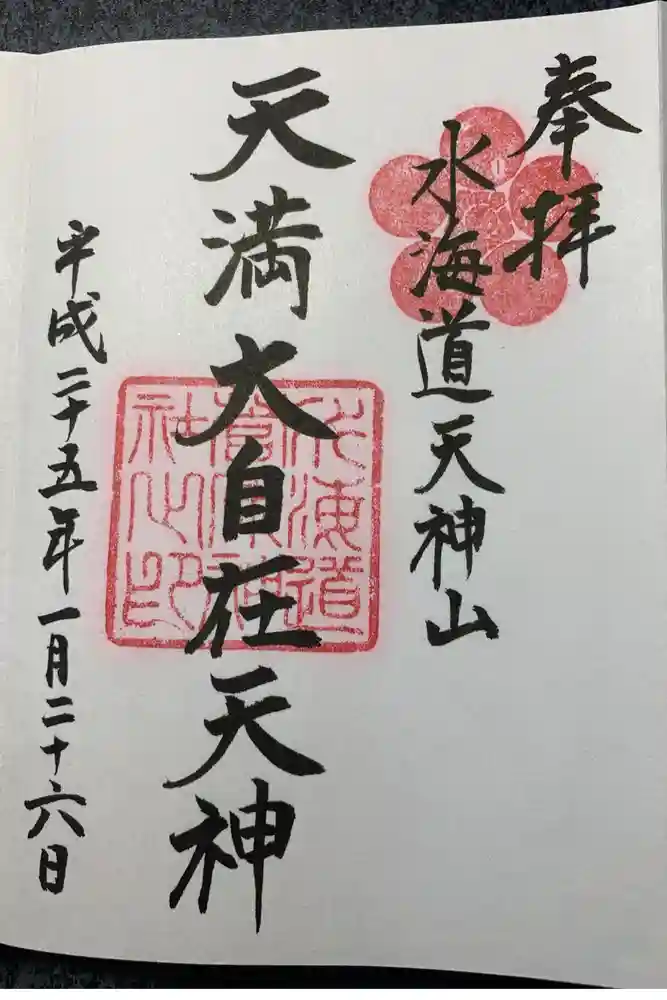 奉拝
水海道天神山
天満大自在天神
平成二十五年一月二十六日
水海道
菅原神
社之印